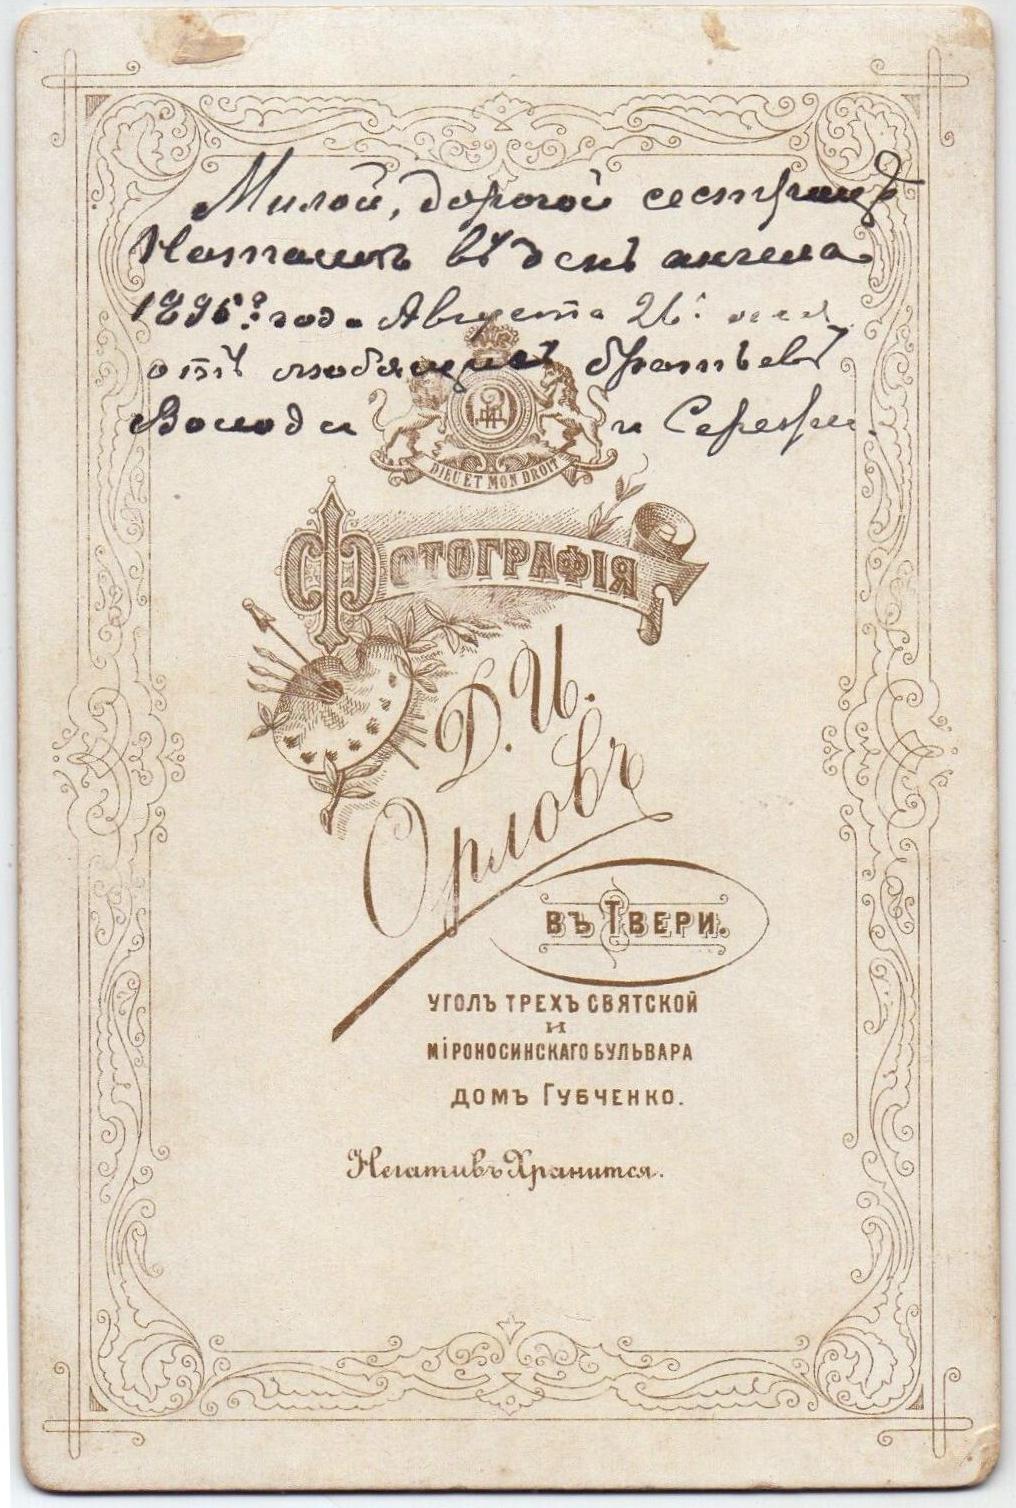 Милой, дорогой сестрице
Наташѣ въ день ангела
1895го года Августа 26.
отъ любящихъ братьевъ
Володи и Сережи.
DIEU ET MON DROIT
ФОТОГРАФІЯ
Д. И.
Орловъ
ВЪ ТВЕРИ.
УГОЛЪ ТРЕХЪ СВЯТСКОЙ
И
МІРОНОСИНСКАГО БУЛЬВАРА
ДОМЪ ГУБЧЕНКО.
Негативъ Хранится.